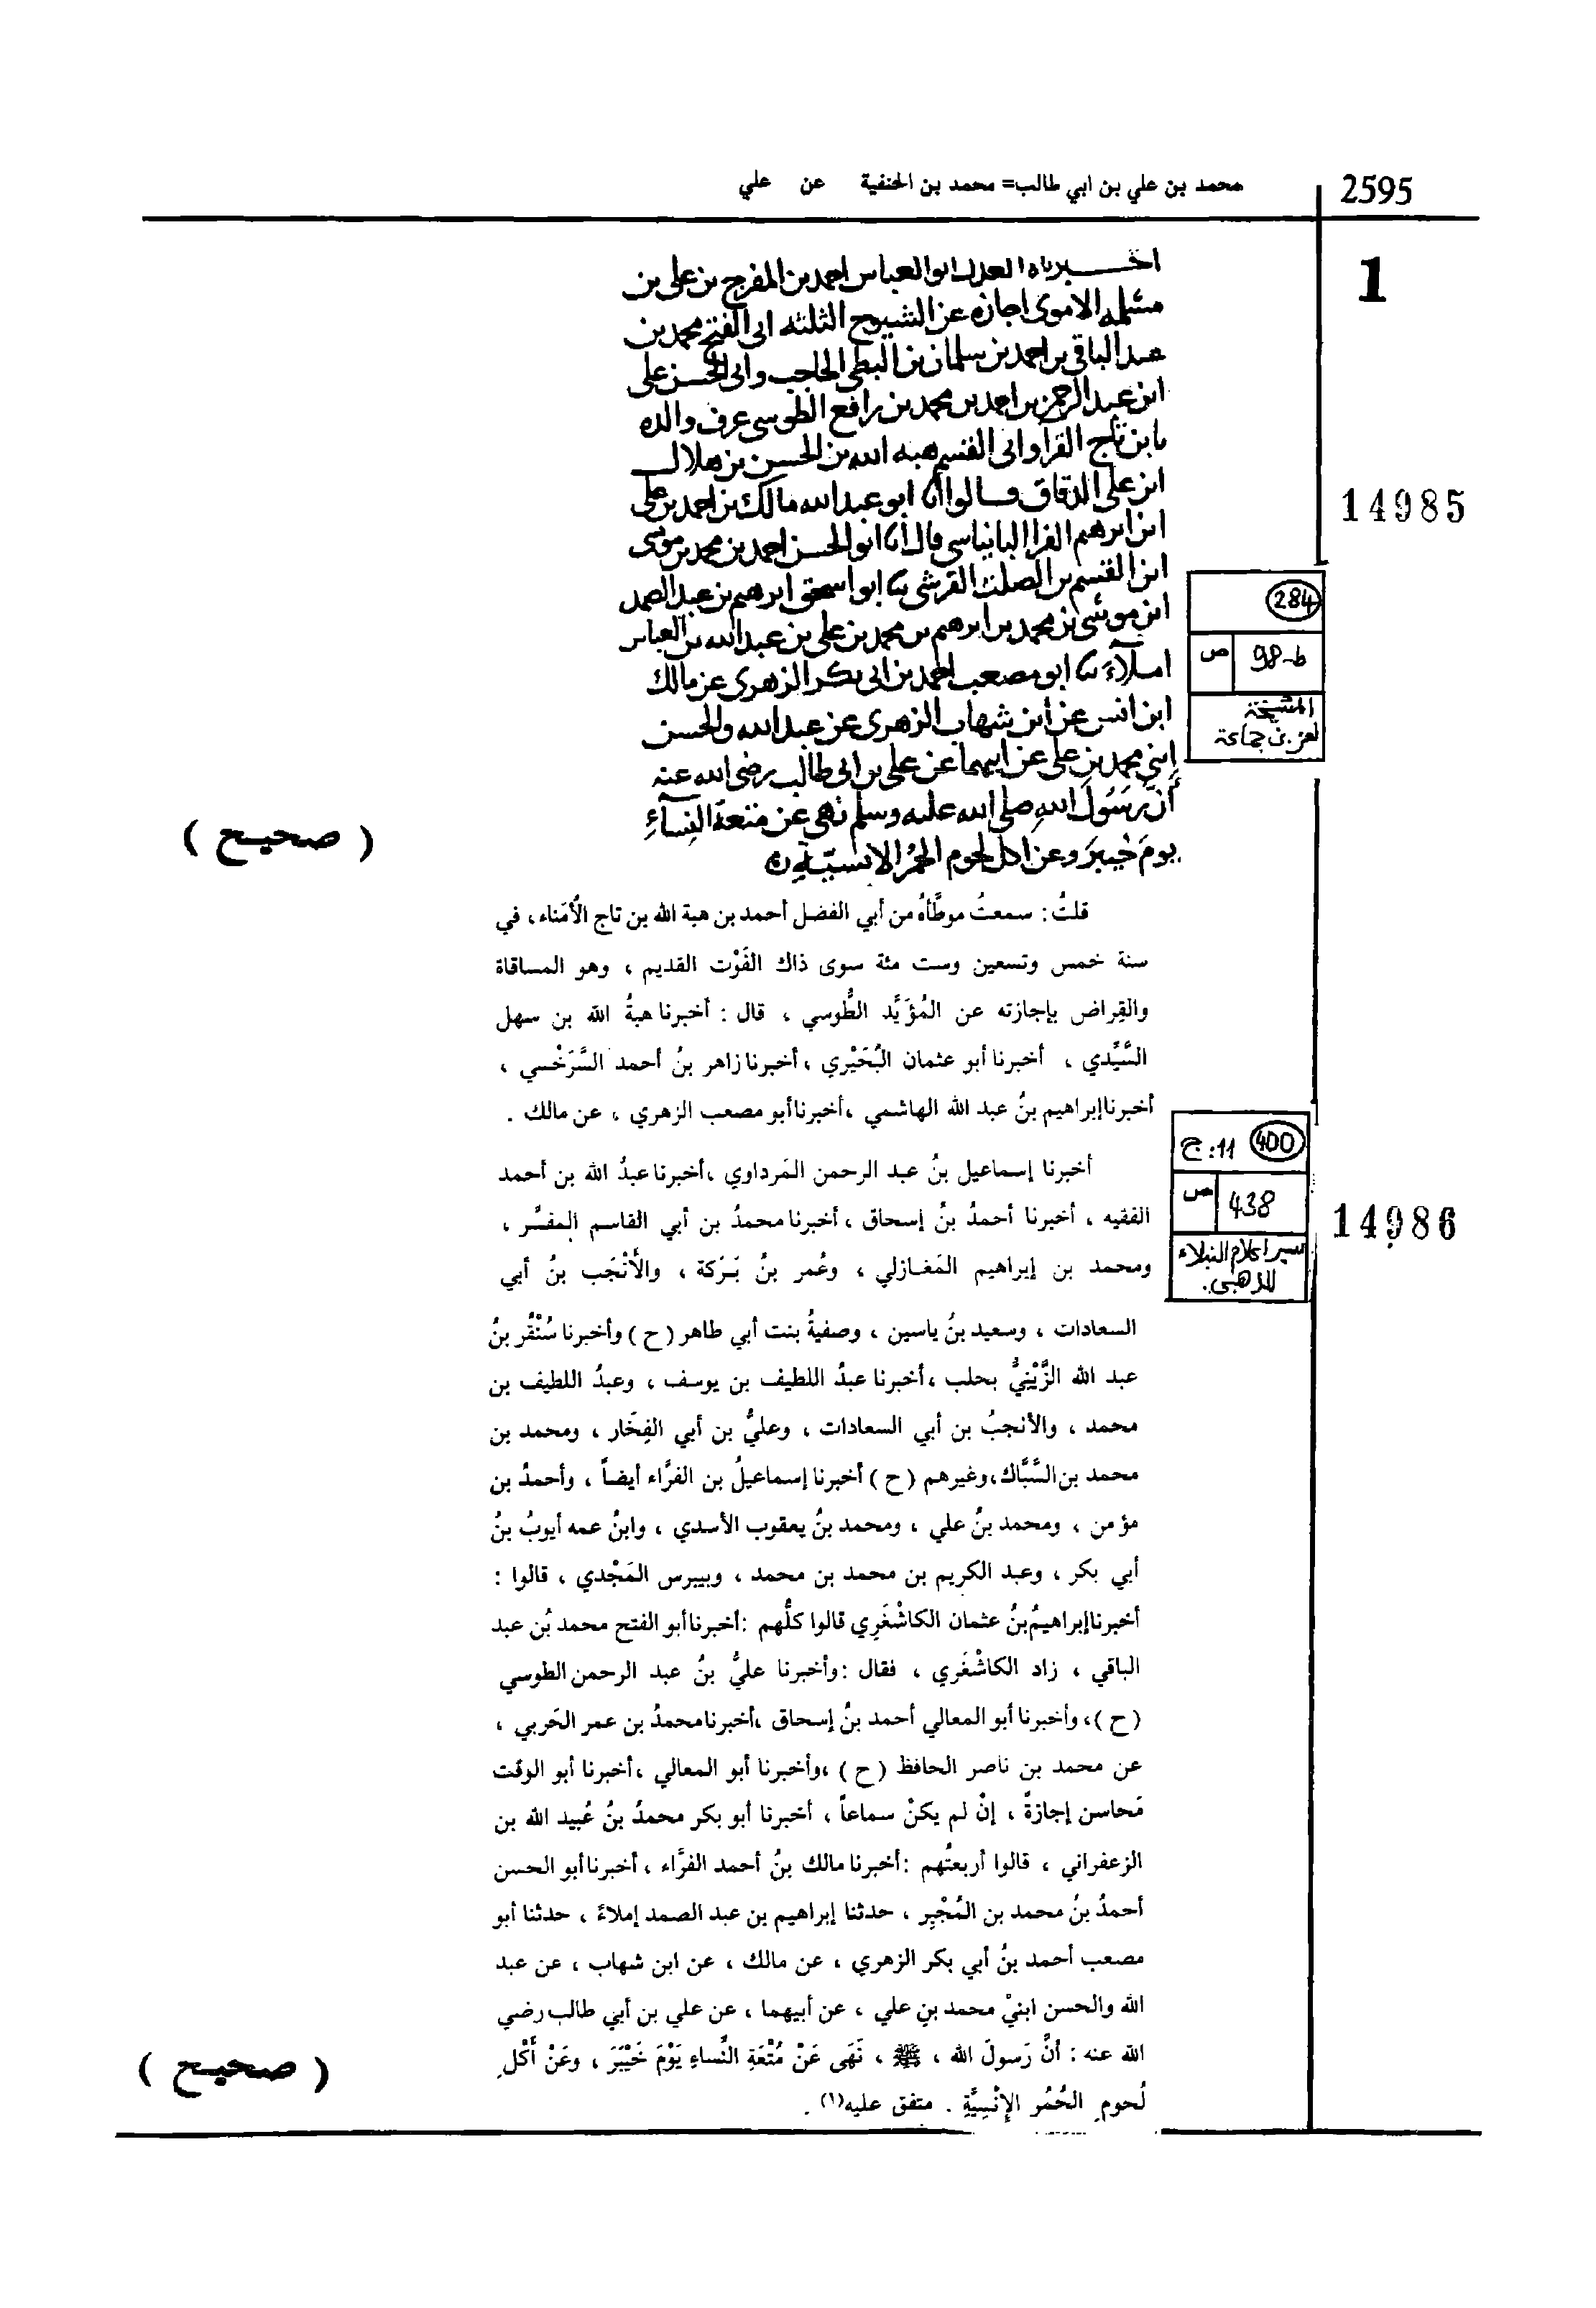 2595
محمد بن علي بن ابي طالب= محمد بن الحنفية عن علي
1
اخـــبرناه العدل ابو العباس احمد بن المفرج بن على بن
مسلمه الاموى اجازه عن الشيوخ الثلثه ابى الفتح محمد بن
عبد الباقى بن احمد بن سلمان بن البطى الحاجب وابى الحسن على
ابن عبد الرحمن بن احمد بن محمد بن رافع الطوسى عرف والده
بابن تاج القرا وابى القسم هبه الله بن الحسن بن هلال
ابن على الدقاق قـالوا انا ابو عبد الله مالك بن احمد بن على
ابن ابرهيم الفرا البانياسى قال انا ابو الحسن احمد بن محمد بن موسى
ابن القسم بن الصلت القرشى ثنا ابو اسحق ابرهيم بن عبد الصمد
ابن موسى بن محمد بن ابرهيم بن محمد بن على بن عبد الله بن العباس
املآءً ثنا ابو مصعب احمد بن ابى بكر الزهرى عن مالك
ابن انس عن ابن شهاب الزهرى عن عبد الله والحسن
ابني محمد بن على عن ابيهما عن على بن ابى طالب رضى الله عنه
أنّ رَسُولَ اللهِ صلى الله عليه وسلم نهى عن متعة النِسآءِ
يومَ خيبرَ وعن اكل لحوم الحُمُر الانسيّةِ
14985
284
98-ط
ص
المشيخة
لعز بن جماعة
( صحيح )
قلتُ : سمعتُ موطَّأهُ من أبي الفضل أحمد بن هبة الله بن تاج الأُمَناء ، في
سنة خمس وتسعين وست مئة سوى ذاك الفَوْت القديم ، وهو المساقاة
والقِراض بإجازته عن المُؤَيَّد الطُّوسي ، قال : أخبرنا هبةُ الله بن سهل
السَّيِّدي ، أخبرنا أبو عثمان البُحَيْري ، أخبرنا زاهر بنُ أحمد السَّرَخْسي ،
أخبرنا إبراهيم بنُ عبد الله الهاشمي ، أخبرنا أبو مصعب الزهري ، عن مالك .
أخبرنا إسماعيل بنُ عبد الرحمن المَرداوي ، أخبرنا عبدُ الله بن أحمد
الفقيه ، أخبرنا أحمدُ بنُ إسحاق ، أخبرنا محمدُ بن أبي القاسم المفسِّر ،
ومحمد بن إبراهيم المَغـازلي ، وعُمر بنُ بَـرَكة ، والأَنْجَب بنُ أبي
14986
400
ج : 11
438
ص
سير اعلام النبلاء
للذهبي .
السعادات ، وسعيد بنُ ياسين ، وصفيةُ بنت أبي طاهر ( ح ) وأخبرنا سُنْقُر بنُ
عبد الله الزَّيْنيُّ بحلب ، أخبرنا عبدُ اللطيف بن يوسف ، وعبدُ اللطيف بن
محمد ، والأنجبُ بن أبي السعادات ، وعليُّ بن أبي الفِخَار ، ومحمد بن
محمد بن السَّبَّاك، وغيرهم ( ح ) أخبرنا إسماعيلُ بن الفرَّاء أيضاً ، وأحمدُ بن
مؤمن ، ومحمد بنُ علي ، ومحمد بنُ يعقوب الأسدي ، وابنُ عمه أيوبُ بنُ
أبي بكر ، وعبد الكريم بن محمد بن محمد ، وبيبرس المَجْدي ، قالوا :
أخبرنا إبراهيمُ بنُ عثمان الكاشْغَرِي قالوا كلُّهم : أخبرنا أبو الفتح محمد بُن عبد
الباقي ، زاد الكاشْغَري ، فقال : وأخبرنا عليُّ بنُ عبد الرحمن الطوسي
( ح )، وأخبرنا أبو المعالي أحمد بنُ إسحاق ، أخبرنا محمدُ بن عمر الحَربي ،
عن محمد بن ناصر الحافظ ( ح ) ، وأخبرنا أبو المعالي ، أخبرنا أبو الوقت
مَحاسن إجازةً ، إنْ لم يكنْ سماعاً ، أخبرنا أبو بكر محمدُ بنُ عُبيد الله بن
الزعفراني ، قالوا أربعتُهم : أخبرنا مالك بنُ أحمد الفرَّاء ، أخبرنا أبو الحسن
أحمدُ بنُ محمد بن المُجْبِر ، حدثنا إبراهيم بن عبد الصمد إملاءً ، حدثنا أبو
مصعب أحمد بنُ أبي بكر الزهري ، عن مالك ، عن ابن شهاب ، عن عبد
الله والحسن ابنيْ محمد بنِ علي ، عن أبيهما ، عن علي بن أبي طالب رضي
الله عنه : أنَّ رَسولَ الله ، ﷺ ، نَهَى عَنْ مُتْعَةِ النِّساءِ يَوْمَ خَيْبَرَ ، وعَنْ أَكْلِ
لُحومِ الحُمُر الإنْسِيَّةِ . متفق عليه(١) .
( صحيح )